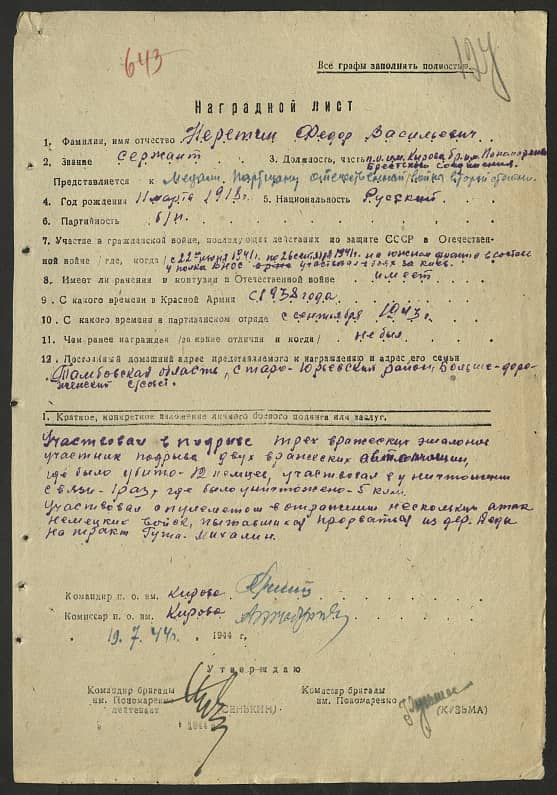 643
Все графы заполнять полностью.
Наградной лист
1. Фамилия, имя отчество Неретин Федор Васильевич
2. Звание сержант 3. Должность, часть п.о. им. Кирова бр. им. Пономаренко
Брестского соединения.
Представляется к Медали Партизану отечественной войны второй степени
4. Год рождения 11 марта 1918 г. 5. Национальность Русский
6. Партийность б/п.
7. Участие в гражданской войне, последующих действиях по защите СССР в Отечествен-
ной войне /где, когда/ с 22 июня 1941 г. по 26 сентября 1941 г. на южном фронте в составе
4 полка ВНОС участвовал в боях за Киев.
8. Имеет ли ранения и контузии в Отечественной войне имеет
9. С какого времени в Красной Армии с 1938 года
10. С какого времени в партизанском отряде с сентября 1943 г.
11. Чем ранее награжден /за какие отличия и когда/ не был
12. Постоянный домашний адрес представляемого к награждению и адрес его семьи
Тамбовская область, Старо-Юрьевский район, Больше-доро-
женский с/совет.
I. Краткое, конкретное изложение личного боевого подвига или заслуг.
Участвовал в подрыве трех вражеских эшелонов
участник подрыва двух вражеских автомашин,
где было убито - 12 немцев, участвовал в уничтожении
связи - 1 раз, где было уничтожено - 5 клм.
Участвовал с пулеметом в отражении нескольких атак
Немецких войск, пытавшихся прорваться из дер.
на тракт Гута-Михалин.
Командир п. о. им. Кирова
Комиссар п. о. им. Кирова
19.7.44 г. 1944 г.
Утверждаю
Командир бригады Комиссар бригады
им. Пономаренко им. Пономаренко
лейтенант (СЕНЬКИН) (КУЗЬМА)
1944